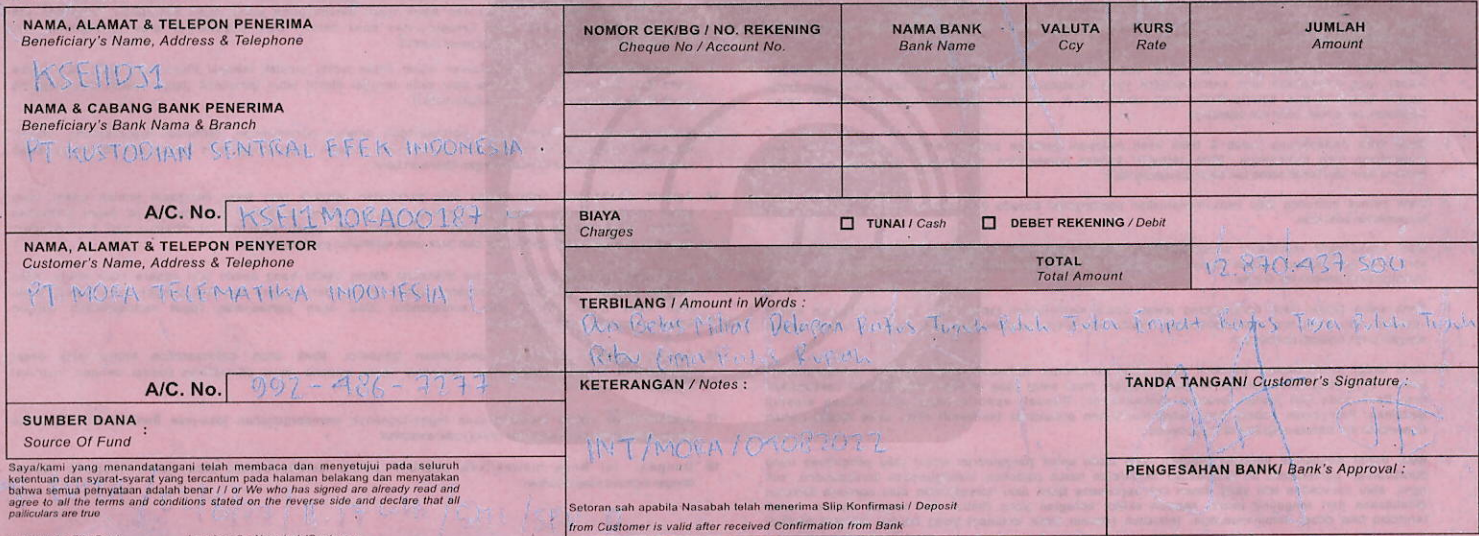 NAMA, ALAMAT & TELEPON PENERIMA
Beneficiary's Name, Address & Telephone
KSEI1DJ1
NAMA & CABANG BANK PENERIMA
Beneficiary's Bank Nama & Branch
PT KUSTODIAN SENTRAL EFEK INDONESIA
A/C. No. KSEI1MORA00187
NAMA, ALAMAT & TELEPON PENYETOR
Customer's Name, Address & Telephone
PT MORA TELEMATIKA INDONESIA
A/C. No. 992-486-7277
SUMBER DANA :
Source Of Fund
Saya/kami yang menandatangani telah membaca dan menyetujui pada seluruh
ketentuan dan syarat-syarat yang tercantum pada halaman belakang dan menyatakan
bahwa semua pernyataan adalah benar / I or We who has signed are already read and
agree to all the terms and conditions stated on the reverse side and declare that all
pailiculars are true
NOMOR CEK/BG / NO. REKENING
Cheque No / Account No.
NAMA BANK
Bank Name
VALUTA
Ccy
KURS
Rate
JUMLAH
Amount
BIAYA
Charges
TUNAI / Cash
DEBET REKENING / Debit
TOTAL
Total Amount
12.870.437.500
TERBILANG / Amount in Words :
Dua Belas Miliar Delapan Ratus Tujuh Puluh Juta Empat Ratus Tiga Puluh Tujuh
Ribu Lima Ratus Rupiah
KETERANGAN / Notes :
INT/MORA/04082022
Setoran sah apabila Nasabah telah menerima Slip Konfirmasi / Deposit
from Customer is valid after received Confirmation from Bank
TANDA TANGAN/ Customer's Signature :
PENGESAHAN BANK/ Bank's Approval :